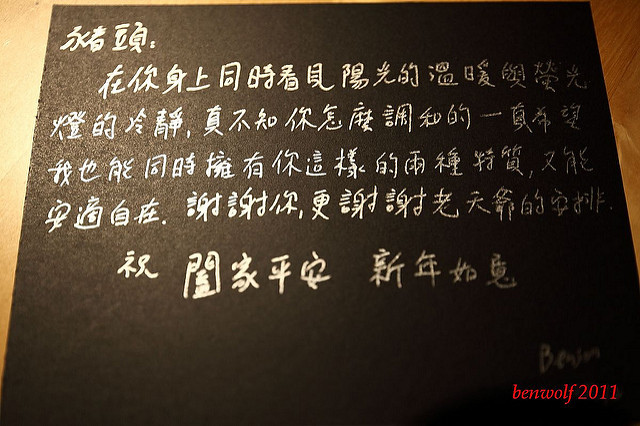 豬頭:
在你身上同時看見陽光的溫暖與螢光
燈的冷靜,真不知你怎麼調和的一真希望
我也能同時擁有你這樣的兩種特質,又能
安適自在.謝謝你,更謝謝老天爺的安排.
祝 闔家平安 新年如意
Benson
benwolf 2011